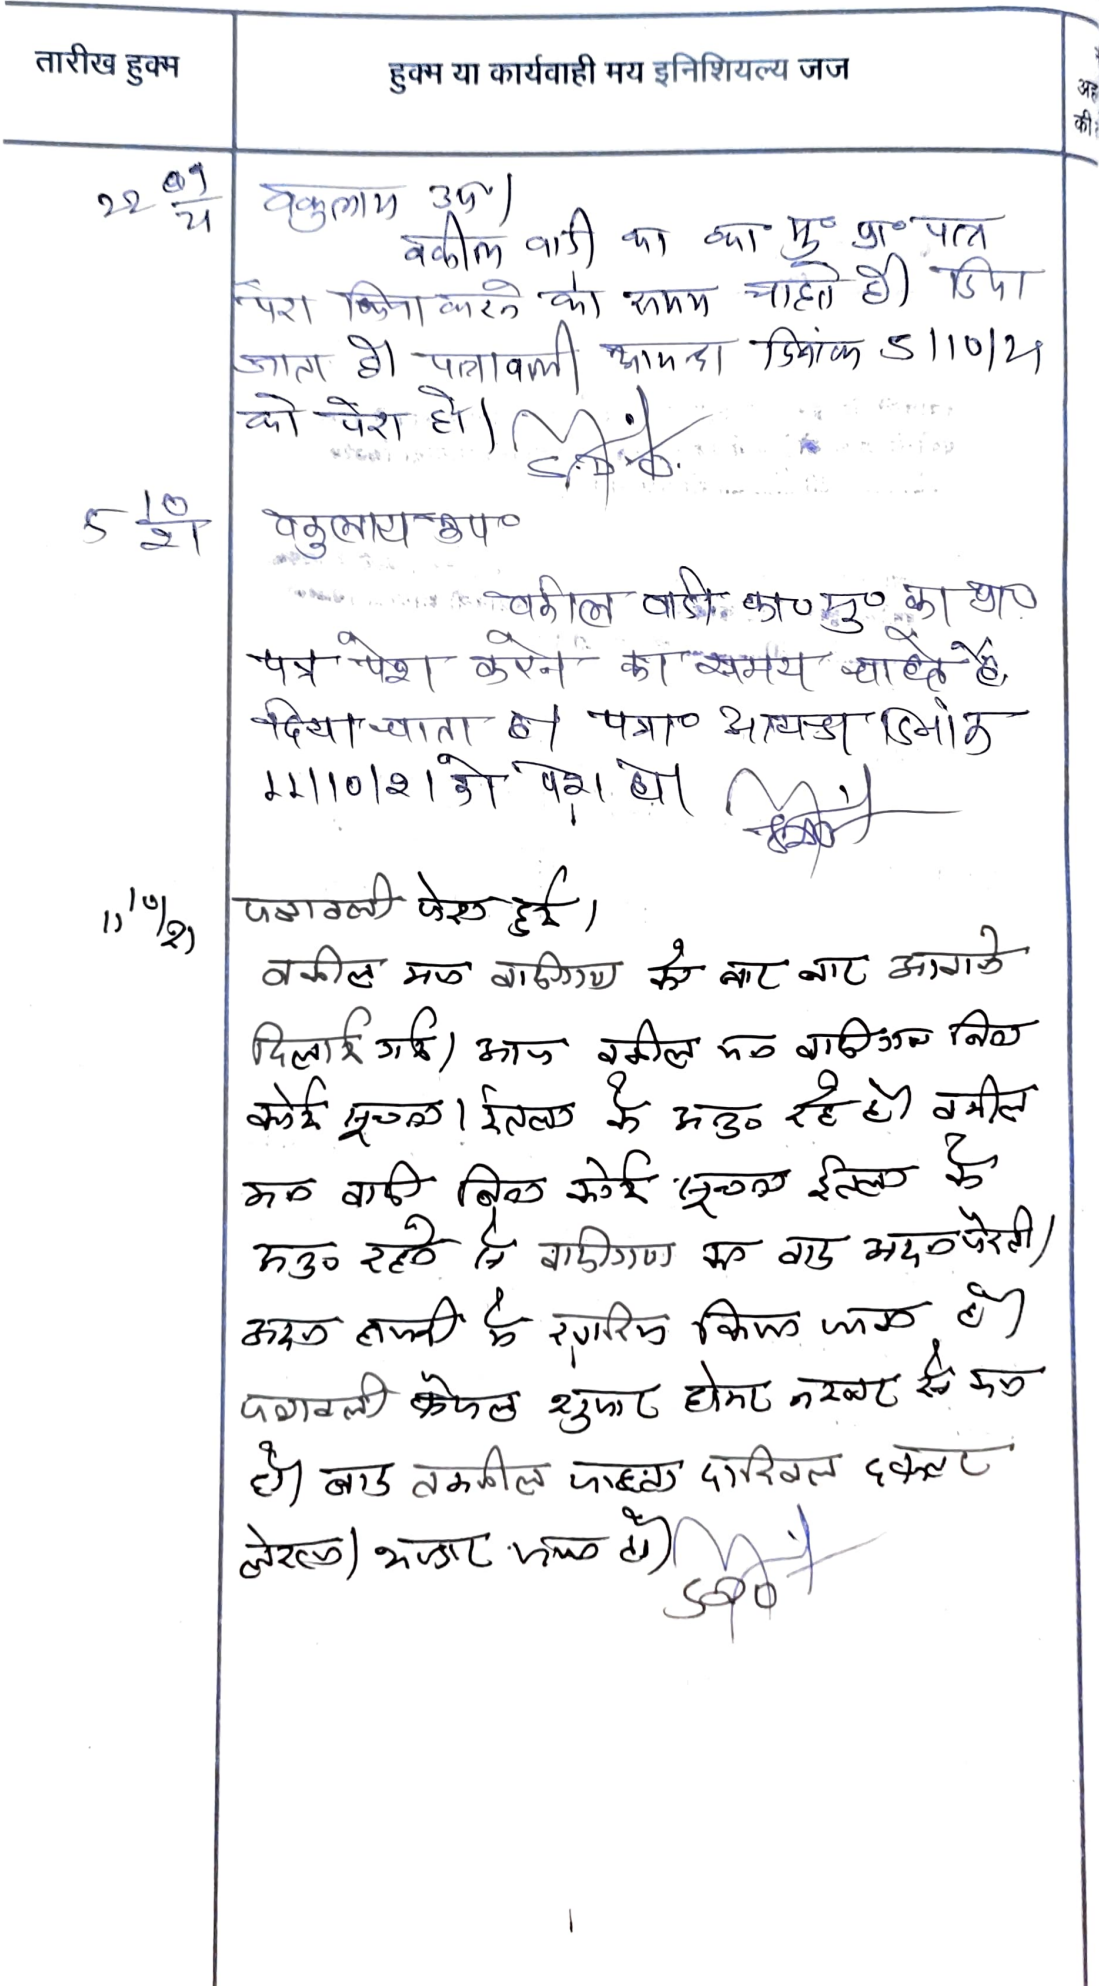 तारीख हुक्म
हुक्म या कार्यवाही मय इनिशियल्य जज
अह
की
22 09/21
वकुलाय उप।
वकील वादी का का मु० प्रा० पत्र
पेश करने का समय चाहते है। दिया
जाता है। पत्रावली आयन्दा दिनांक 5/10/21
को पेश हो।
5 10/21
वकुलाय उप०
वकील वादी का० मु० का प्रा०
पत्र पेश करने का समय चाहते हैं,
दिया जाता है। पत्रा० आयन्दा दिनांक
11/10/21 को पेश हो।
11 10/21
पत्रावली पेश हुई।
वकील वादीगण को बार बार आवाजे
दिलाई गई। आज वकील वादीगण बिना
कोई सूचना। ईतला के अनु० रहे है। वकील
वादी बिना कोई सूचना ईतला के
अनु० रहने से वादीगण का वाद अदम पैरवी।
अदम के खारिज किया जाता है।
पत्रावली फैसल शुमार होकर नम्बर से कम
हो। बाद तकमील दाखिल दफ्तर
जाता है।